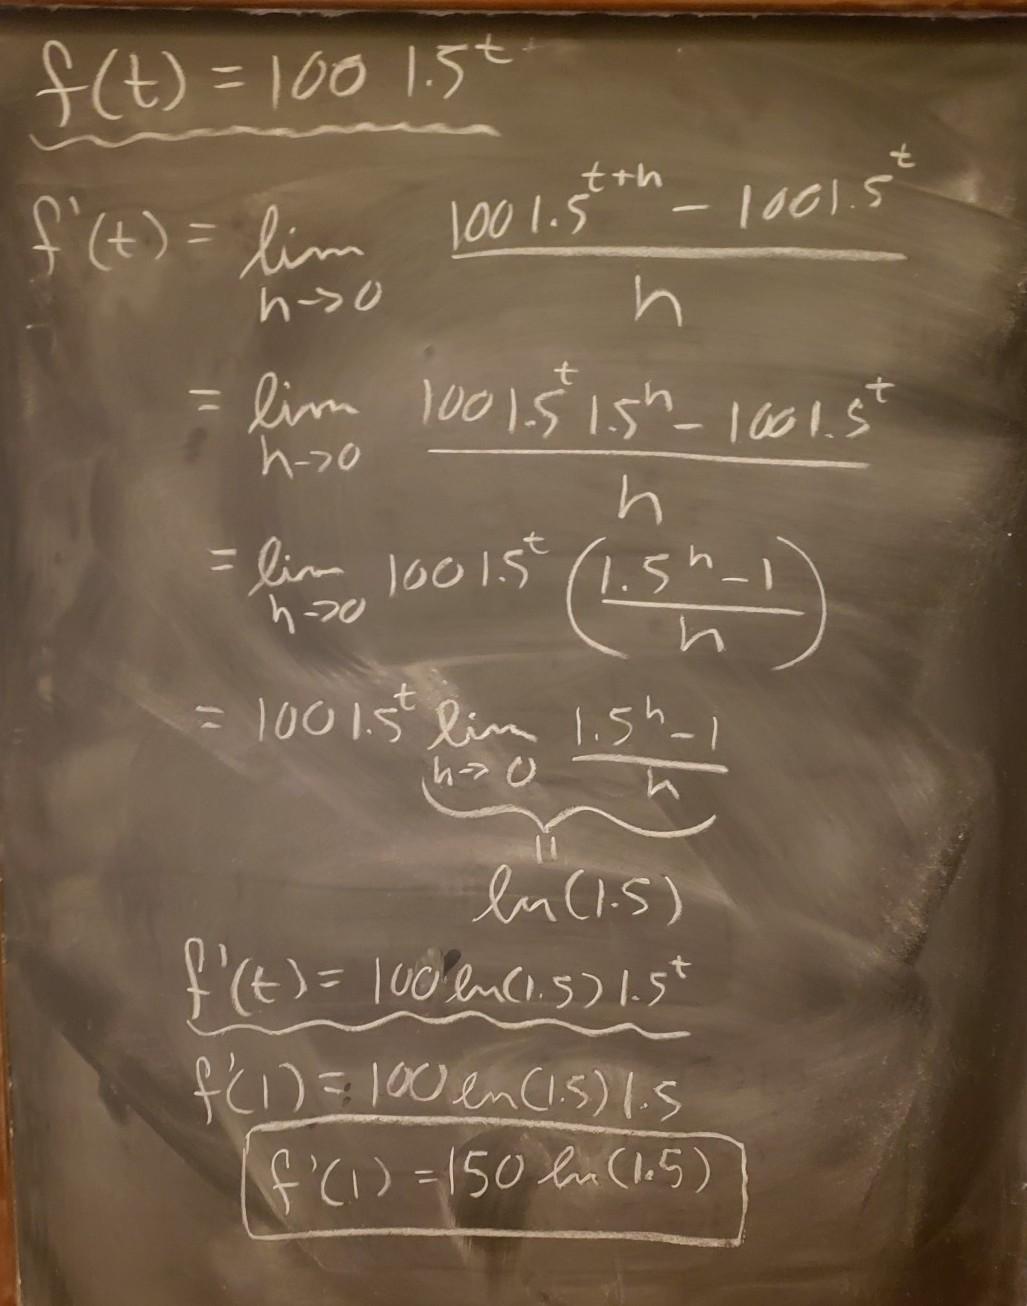 f(t) = 100 1.5^t
f'(t) = lim h->0 (100 1.5^(t+h) - 100 1.5^t) / h
= lim h->0 (100 1.5^t 1.5^h - 100 1.5^t) / h
= lim h->0 100 1.5^t ((1.5^h - 1) / h)
= 100 1.5^t lim h->0 (1.5^h - 1) / h
=
ln(1.5)
f'(t) = 100 ln(1.5) 1.5^t
f'(1) = 100 ln(1.5) 1.5
f'(1) = 150 ln(1.5)